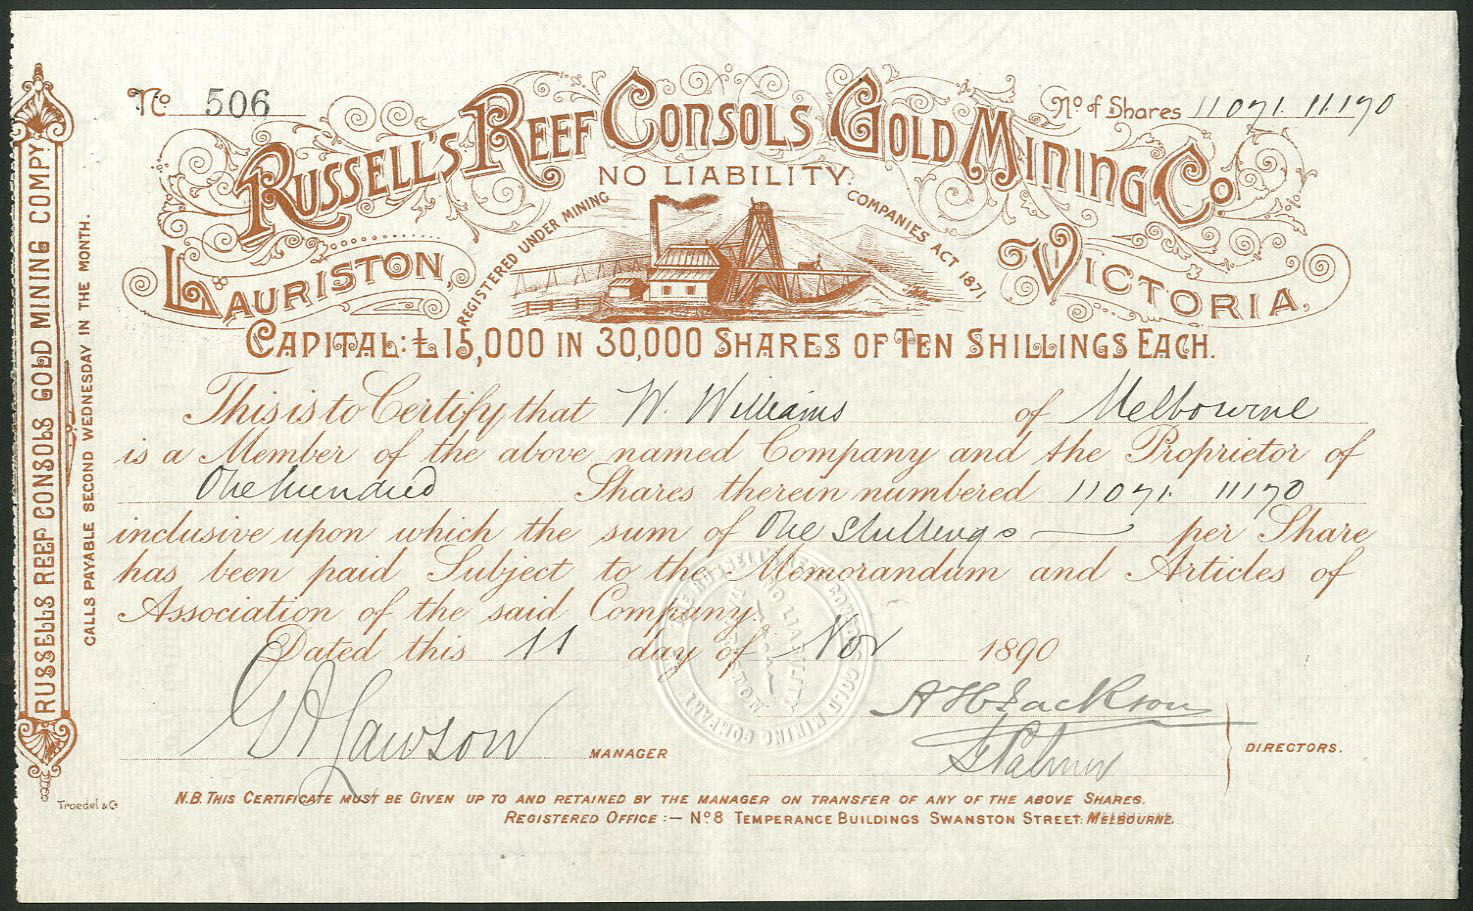 No 506
No of Shares 11071. 11170
RUSSELL'S REEF CONSOLS GOLD MINING CO.
NO LIABILITY.
REGISTERED UNDER MINING COMPANIES ACT 1871
LAURISTON, VICTORIA,
CAPITAL: £15,000 IN 30,000 SHARES OF TEN SHILLINGS EACH.
This is to Certify that W. Williams of Melbourne
is a Member of the above named Company and the Proprietor of
One hundred Shares therein numbered 11071. 11170
inclusive upon which the sum of One shillings per Share
has been paid Subject to the Memorandum and Articles of
Association of the said Company.
Dated this 11 day of Nov 1890
G A Lawson MANAGER
A H Jackson
Palmer
DIRECTORS.
N.B. THIS CERTIFICATE MUST BE GIVEN UP TO AND RETAINED BY THE MANAGER ON TRANSFER OF ANY OF THE ABOVE SHARES.
REGISTERED OFFICE:— No 8 TEMPERANCE BUILDINGS SWANSTON STREET. MELBOURNE.
RUSSELLS REEF CONSOLS GOLD MINING COMPY
CALLS PAYABLE SECOND WEDNESDAY IN THE MONTH.
Troedel & Co